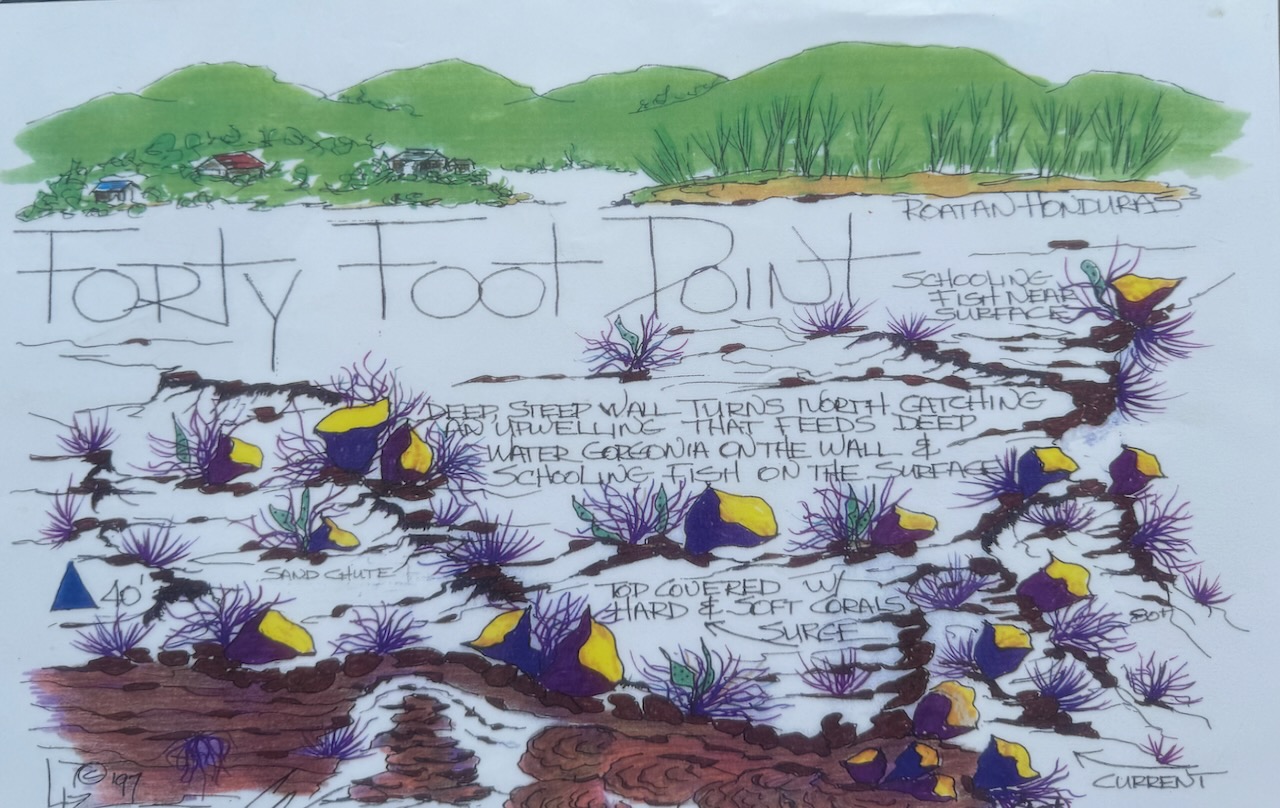 ROATAN HONDURAS
FORTY FOOT POINT
SCHOOLING
FISH NEAR
SURFACE
DEEP, STEEP WALL TURNS NORTH CATCHING
AN UPWELLING THAT FEEDS DEEP
WATER GORGONIA ON THE WALL &
SCHOOLING FISH ON THE SURFACE
SAND CHUTE
40'
TOP COVERED W/
HARD & SOFT CORALS
SURGE
80'
CURRENT
© '97